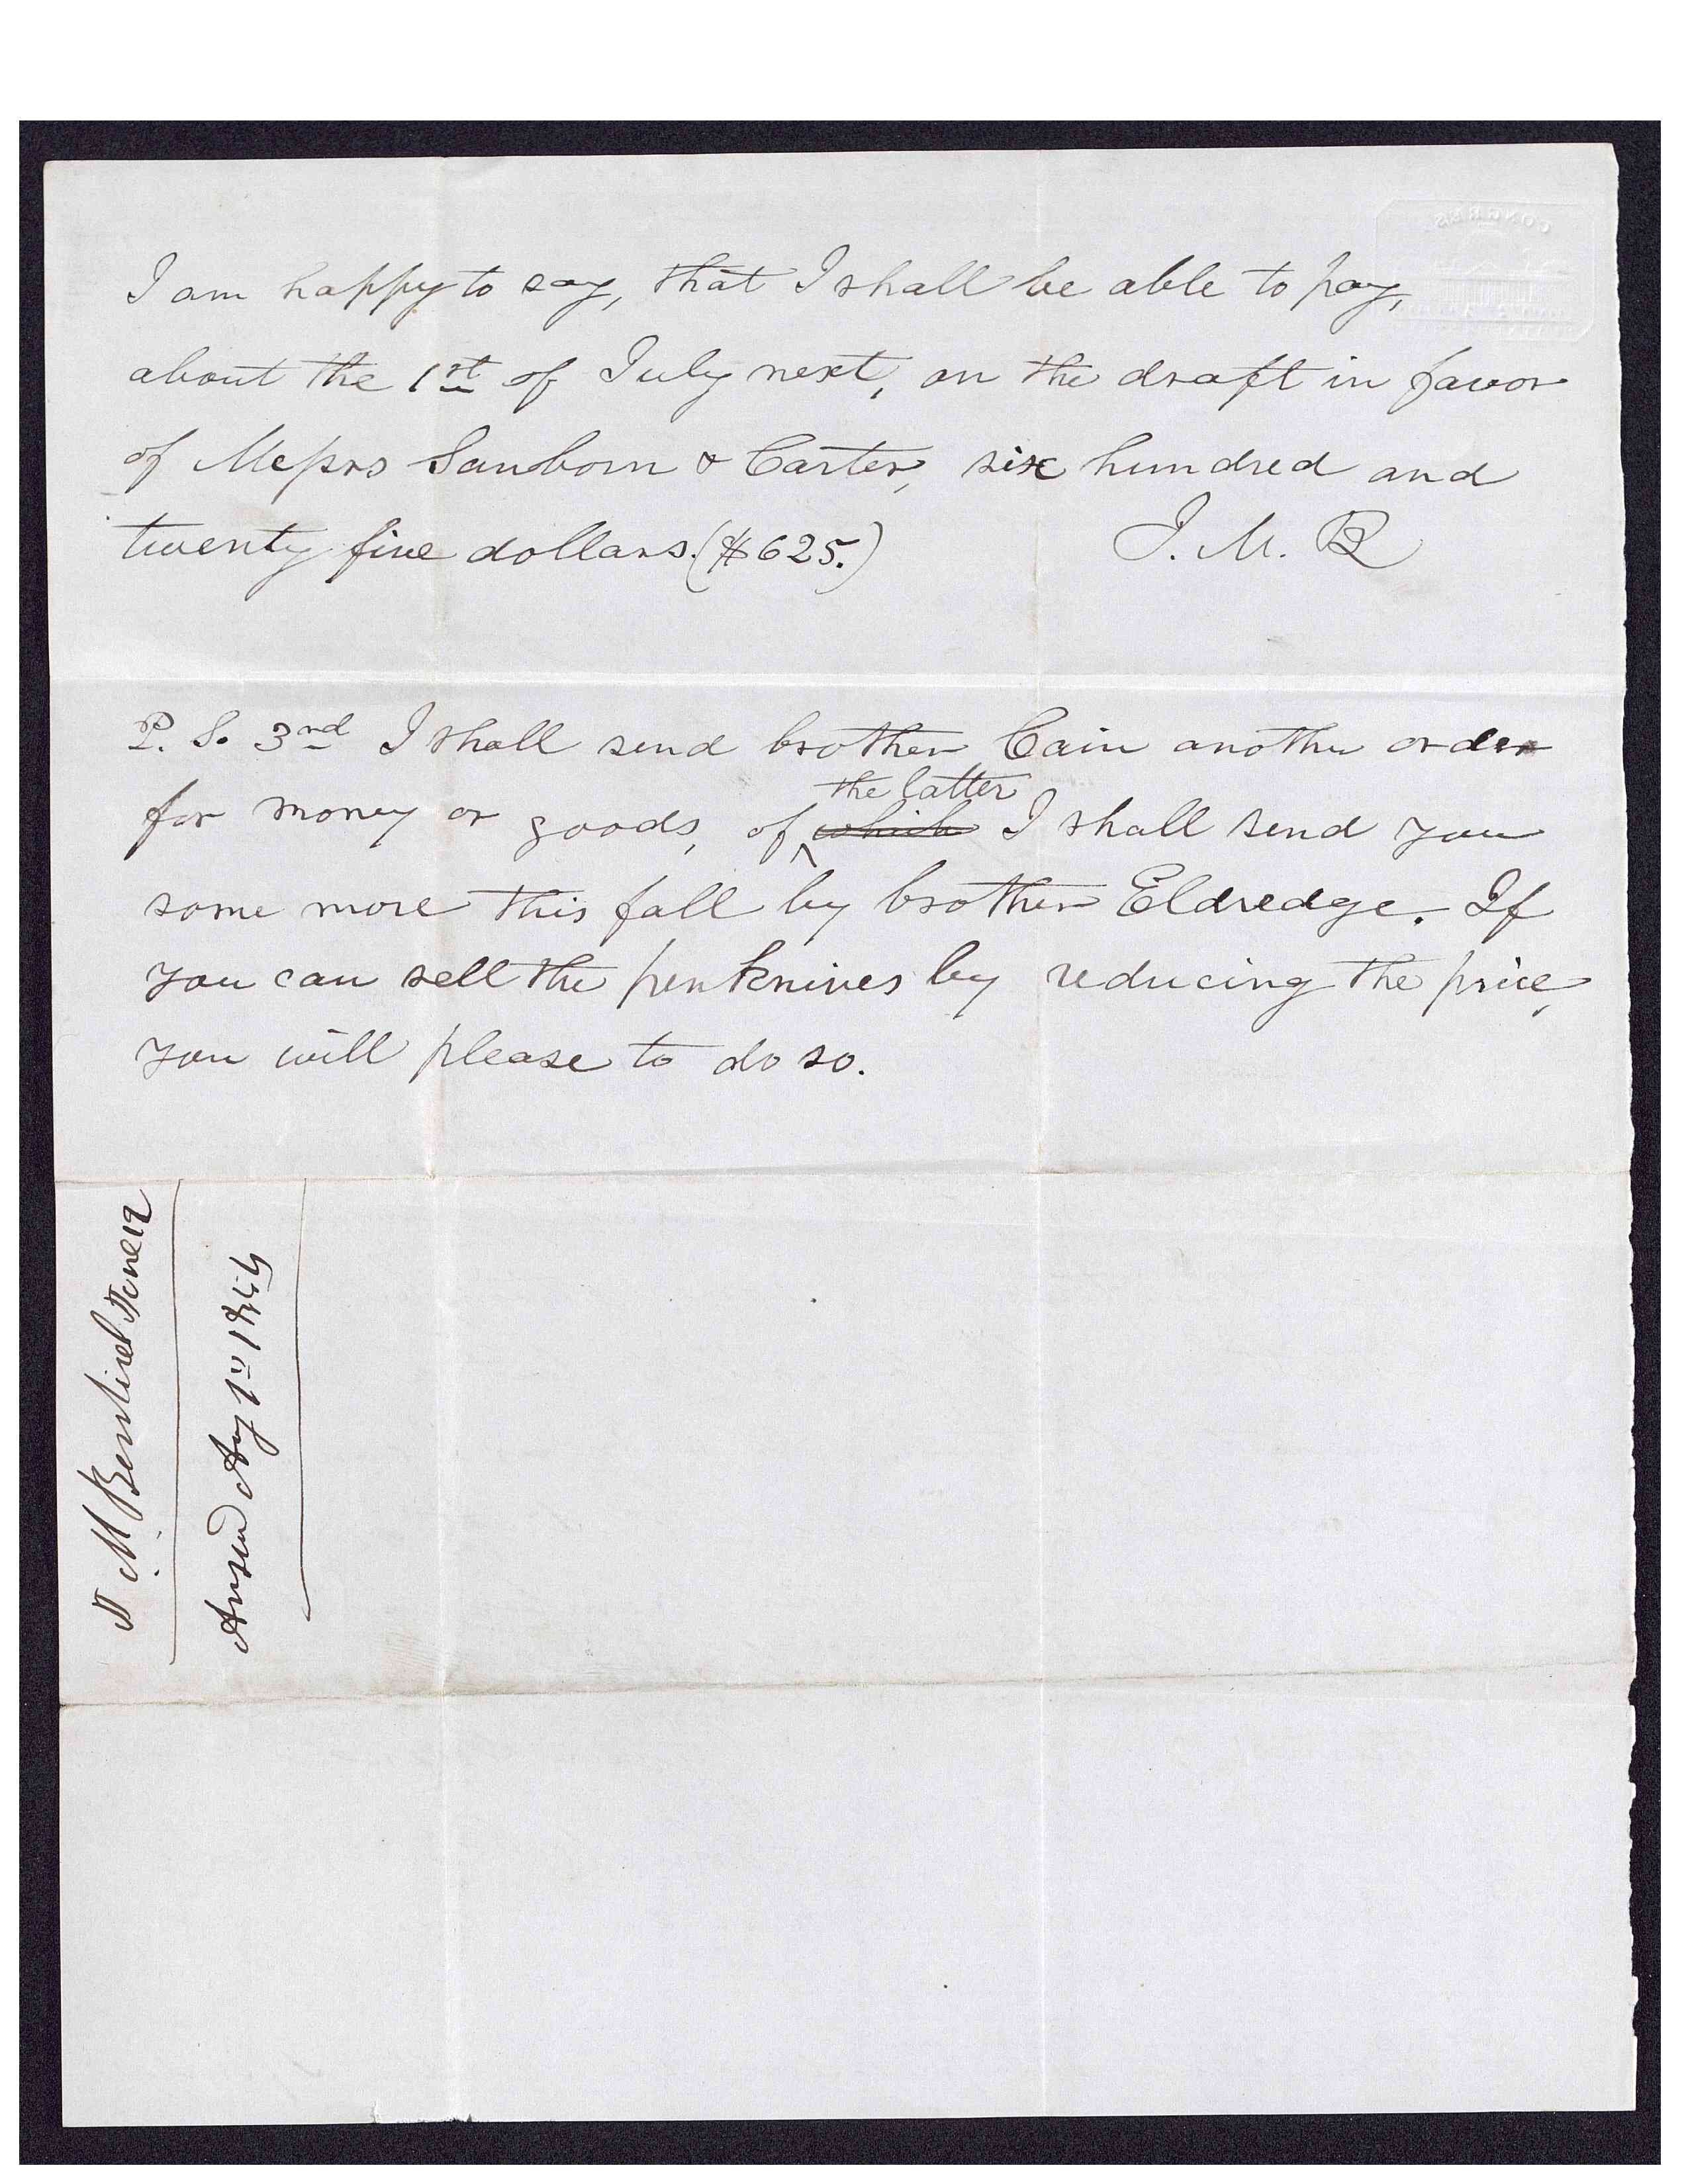 CONGRESS
I am happy to say, that I shall be able to pay,
about the 1st of July next, on the draft in favor
of Messrs Sanborn & Carter, six hundred and
twenty five dollars. ($625.) J. M. B
P. S. 3nd I shall send brother Cain another order
the latter
for money or goods, of which I shall send you
some more this fall by brother Eldredge. If
you can sell the penknives by reducing the price,
you will please to do so.
J M. Bernhisel June 12
Ansrd Aug 1st